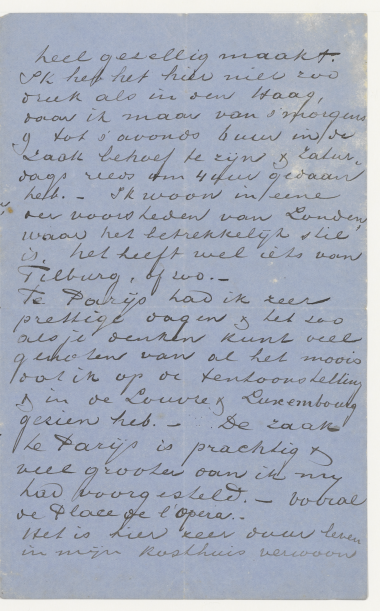 heel gezellig maakt.
Ik heb het hier niet zoo
druk als in den Haag,
daar ik maar van s'morgens
9 tot s'avonds 6 uur in de
zaak behoef te zijn & Zatur-
dags reeds om 4 uur gedaan
heb. – Ik woon in eene
der voorsteden van Londen,
waar het betrekkelijk stil
is. Het heeft wel iets van
Tilburg, of zoo. –
Te Parijs had ik zeer
prettige dagen & heb zoo
als je denken kunt veel
genoten van al het moois
dat ik op de tentoonstelling
& in de Louvre & Luxembourg
gezien heb. – De zaak
te Parijs is prachtig &
veel grooter dan ik mij
had voorgesteld. – vooral
de Place de l'opera. –
Het is hier zeer duur leven
in mijn kosthuis verwoon